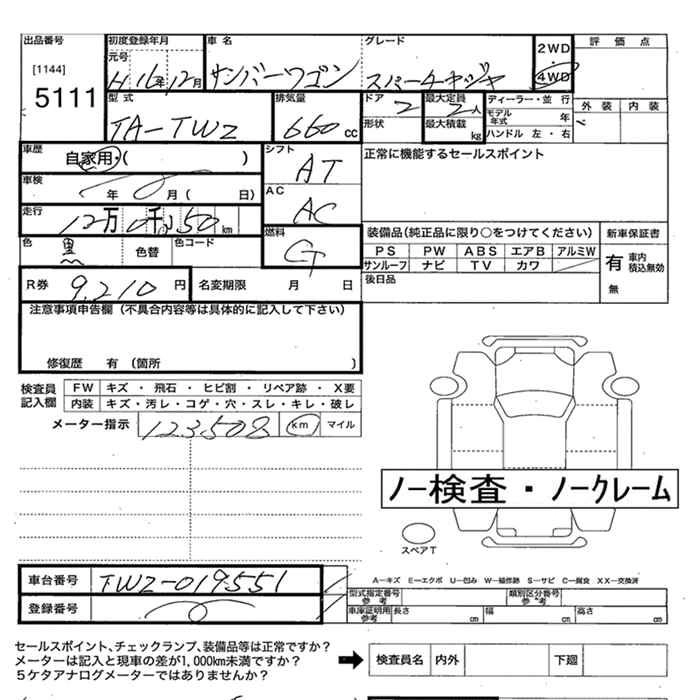 出品番号 初度登録年月 車名 グレード 2WD 評価点
[1144] 元号 4WD
5111 H16年12月 サンバーワゴン スーパーチャージャ
型式 排気量 ドア 最大定員 ディーラー・並行 外装 内装
TA-TW2 660cc 2 2人 モデル年式 年
形状 最大積載 kg ハンドル 左・右
車歴 自家用・( ) シフト AT 正常に機能するセールスポイント
車検 年 月( 日) AC AC
走行 12万0千,50km 燃料 装備品(純正品に限り○をつけてください) 新車保証書
色 黒 色替 色コード PS PW ABS エアB アルミW 有 車内積込無効
サンルーフ ナビ TV カワ 無
R券 9,210円 名変期限 月 日 後日品
注意事項申告欄(不具合内容等は具体的に記入して下さい)
修復歴 有(箇所 )
検査員記入欄 FW キズ・飛石・ヒビ割・リペア跡・X要
内装 キズ・汚レ・コゲ・穴・スレ・キレ・破レ
メーター指示 123508 km マイル
ノー検査・ノークレーム
スペアT
車台番号 TW2-019551 A—キズ E—エクボ U—凹み W—補修跡 S—サビ C—腐食 XX—交換済
型式指定番号参考 類別区分番号参考
登録番号 車庫証明用参考 長さ cm 幅 cm 高さ cm
セールスポイント、チェックランプ、装備品等は正常ですか?
メーターは記入と現車の差が1,000km未満ですか? 検査員名 内外 下廻
5ケタアナログメーターではありませんか?